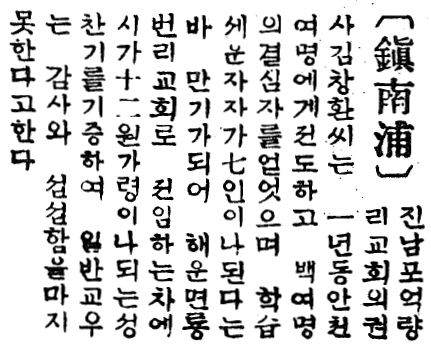 〔鎭南浦〕
진남포억량
리교회의권
사김창환씨는 一년동안천
여명에게전도하고 백여명
의결심자를얻엇으며 학습
세운자자가七인이나된다는
바 만기가되어 해운면룡
번리교회로 전임하는차에
시가十二원가령이나되는성
찬기를기증하여 일반교우
는 감사와 섭섭함을마지
못한다고한다